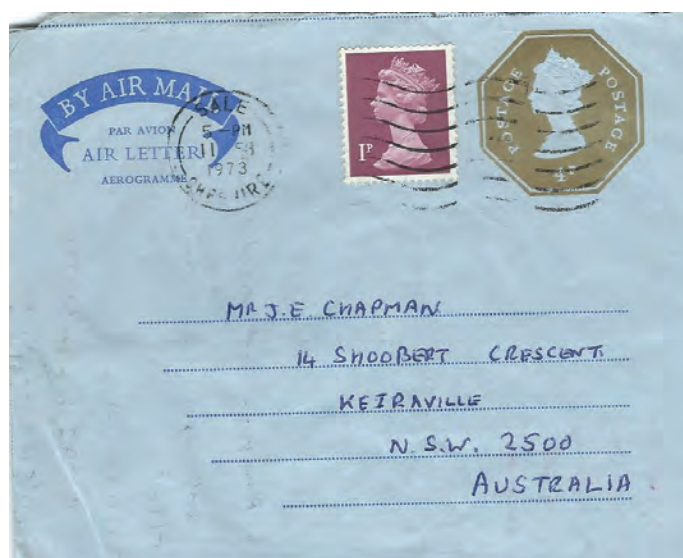 BY AIR MAIL
PAR AVION
AIR LETTER
AEROGRAMME
SALE
5 - PM
11
1973
1P
POSTAGE POSTAGE
MR J.E. CHAPMAN
14 SHOOBERT CRESCENT
KEIRAVILLE
N.S.W. 2500
AUSTRALIA